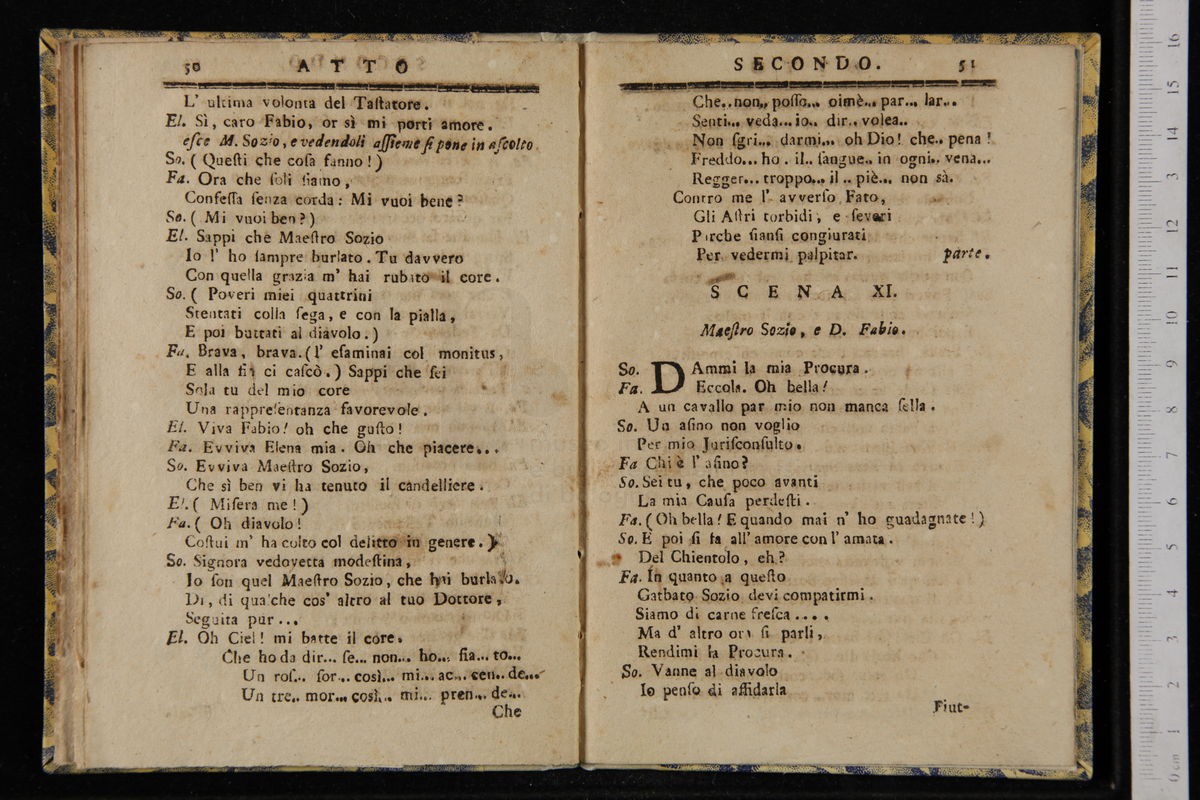 50 ATTO
L' ultima volonta del Taſtatore.
El. Sì, caro Fabio, or sì mi porti amore.
eſce M. Sozio, e vedendoli aſſieme ſi pone in aſcolto.
So. ( Queſti che coſa fanno ! )
Fa. Ora che ſoli ſiamo,
Confeſſa ſenza corda: Mi vuoi bene?
So. ( Mi vuoi ben? )
El. Sappi che Maeſtro Sozio
Io l' ho ſampre burlato. Tu davvero
Con quella grazia m' hai rubato il core.
So. ( Poveri miei quattrini
Stentati colla ſega, e con la pialla,
E poi buttati al diavolo. )
Fa. Brava, brava. ( l' eſaminai col monitus,
E alla fi ci caſcò. ) Sappi che ſei
Sola tu del mio core
Una rappreſentanza favorevole.
El. Viva Fabio! oh che guſto!
Fa. Evviva Elena mia. Oh che piacere...
So. Evviva Maeſtro Sozio,
Che sì ben vi ha tenuto il candelliere.
El. ( Miſera me! )
Fa. ( Oh diavolo!
Coſtui m' ha colto col delitto in genere. )
So. Signora vedovetta modeſtina,
Io ſon quel Maeſtro Sozio, che hai burlato.
Di, di qualche cos' altro al tuo Dottore,
Seguita pur ...
El. Oh Ciel! mi batte il core.
Che ho da dir... ſe... non... ho... fia... to...
Un roſ... ſor... così... mi... ac... cen.. de...
Un tre.. mor... così... mi... pren... de...
Che
SECONDO. 51
Che.. non.. poſſo... oimè... par... lar...
Senti... veda... io.. dir.. volea..
Non ſgri... darmi... oh Dio! che.. pena !
Freddo... ho . il.. ſangue.. in ogni.. vena...
Regger... troppo... il .. piè... non sà.
Contro me l' avverſo Fato,
Gli Aſtri torbidi, e ſeveri
Parche ſianſi congiurati
Per vedermi palpitar. parte.
SCENA XI.
Maeſtro Sozio, e D. Fabio.
So. DAmmi la mia Procura.
Fa. Eccola. Oh bella!
A un cavallo par mio non manca ſella.
So. Un aſino non voglio
Per mio Juriſconſulto.
Fa Chi è l' aſino?
So. Sei tu, che poco avanti
La mia Cauſa perdeſti.
Fa. ( Oh bella! E quando mai n' ho guadagnate! )
So. E poi ſi fa all' amore con l' amata.
Del Chientolo, eh?
Fa. In quanto a queſto
Gatbato Sozio devi compatirmi.
Siamo di carne freſca ....
Ma d' altro or ſi parli,
Rendimi la Procura.
So. Vanne al diavolo
Io penſo di affidarla
Fiut-
16
15
14
13
12
11
10
9
8
7
6
5
4
3
2
1
0 cm